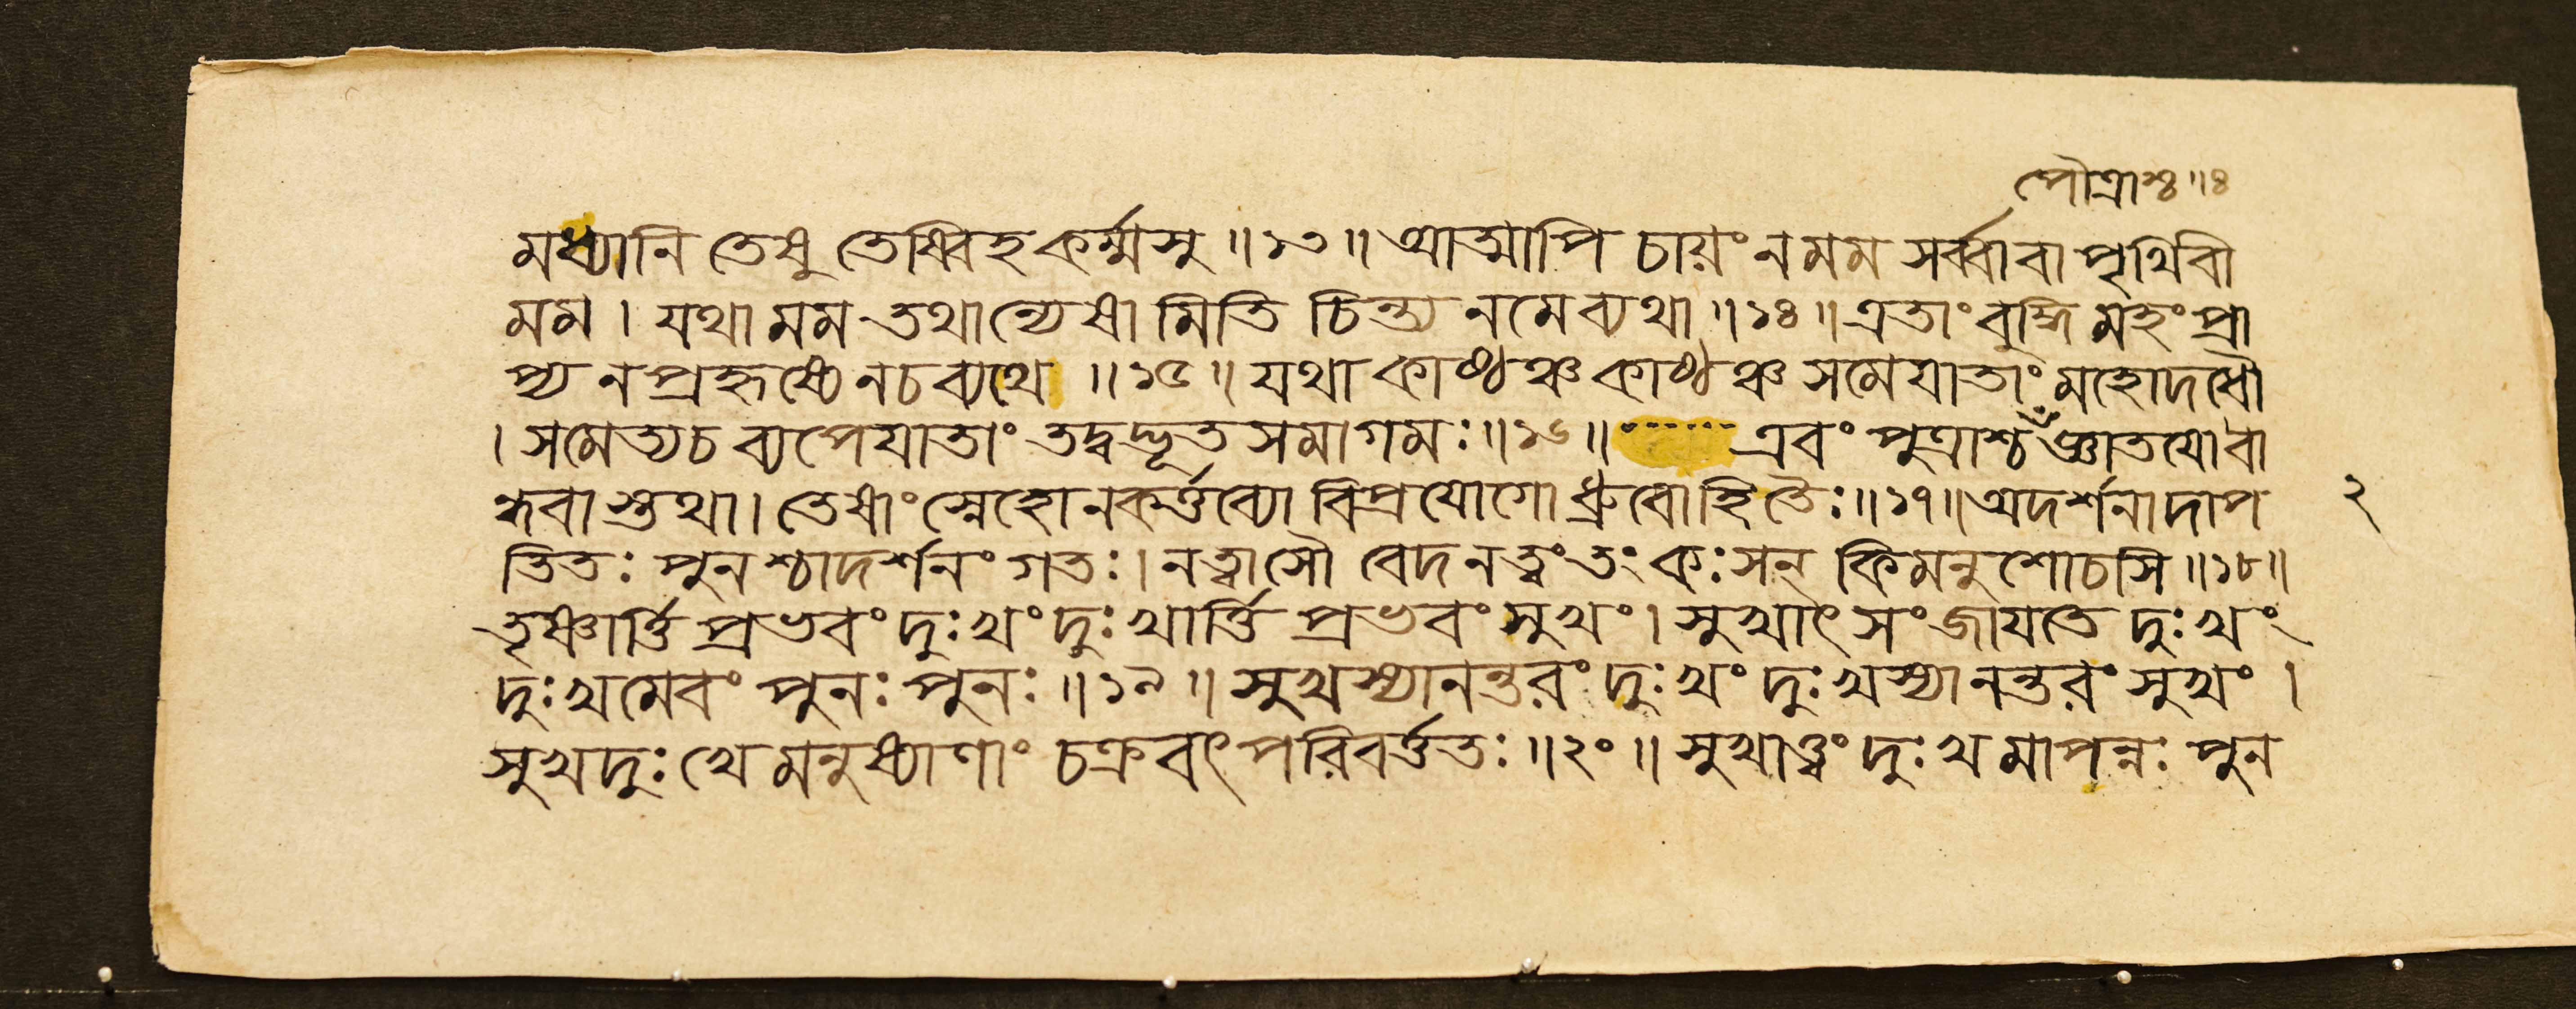 পৌত্রাশ্চ॥৪
মধ্যানি তেষু তেষ্বিহ কর্ম্মসু॥১৩॥ আত্মাপি চায়ং ন মম সর্ব্বা বা পৃথিবী
মম। যথা মম তথান্যেষামিতি চিন্ত্য ন মে ব্যথা॥১৪॥ এতাং বুদ্ধিমহং প্রা
প্য ন প্রহৃষ্যে ন চ ব্যথে॥১৫॥ যথা কাষ্ঠঞ্চ কাষ্ঠঞ্চ সমেযাতাং মহোদধৌ
। সমেত্য চ ব্যপেযাতাং তদ্বদ্ভূত সমাগমঃ॥১৬॥ এবং পুত্রাশ্চ জ্ঞাতযো বা
ন্ধবাস্তথা। তেষাং স্নেহো ন কর্ত্তব্যো বিপ্রযোগো ধ্রুবো হি তৈঃ॥১৭॥ অদর্শনাদাপ
২
তিতঃ পুনশ্চাদর্শনং গতঃ। ন ত্বাসৌ বেদ ন ত্বং তং কঃ সন্ কিমনুশোচসি॥১৮॥
তৃষ্ণার্ত্তি প্রভবং দুঃখং দুঃখার্ত্তি প্রভবং সুখং। সুখাৎ সংজাযতে দুঃখং
দুঃখমেবং পুনঃ পুনঃ॥১৯॥ সুখস্যানন্তরং দুঃখং দুঃখস্যানন্তরং সুখং।
সুখদুঃখে মনুষ্যাণাং চক্রবৎ পরিবর্ত্ততঃ॥২০॥ সুখাত্ত্বং দুঃখমাপন্নঃ পুন